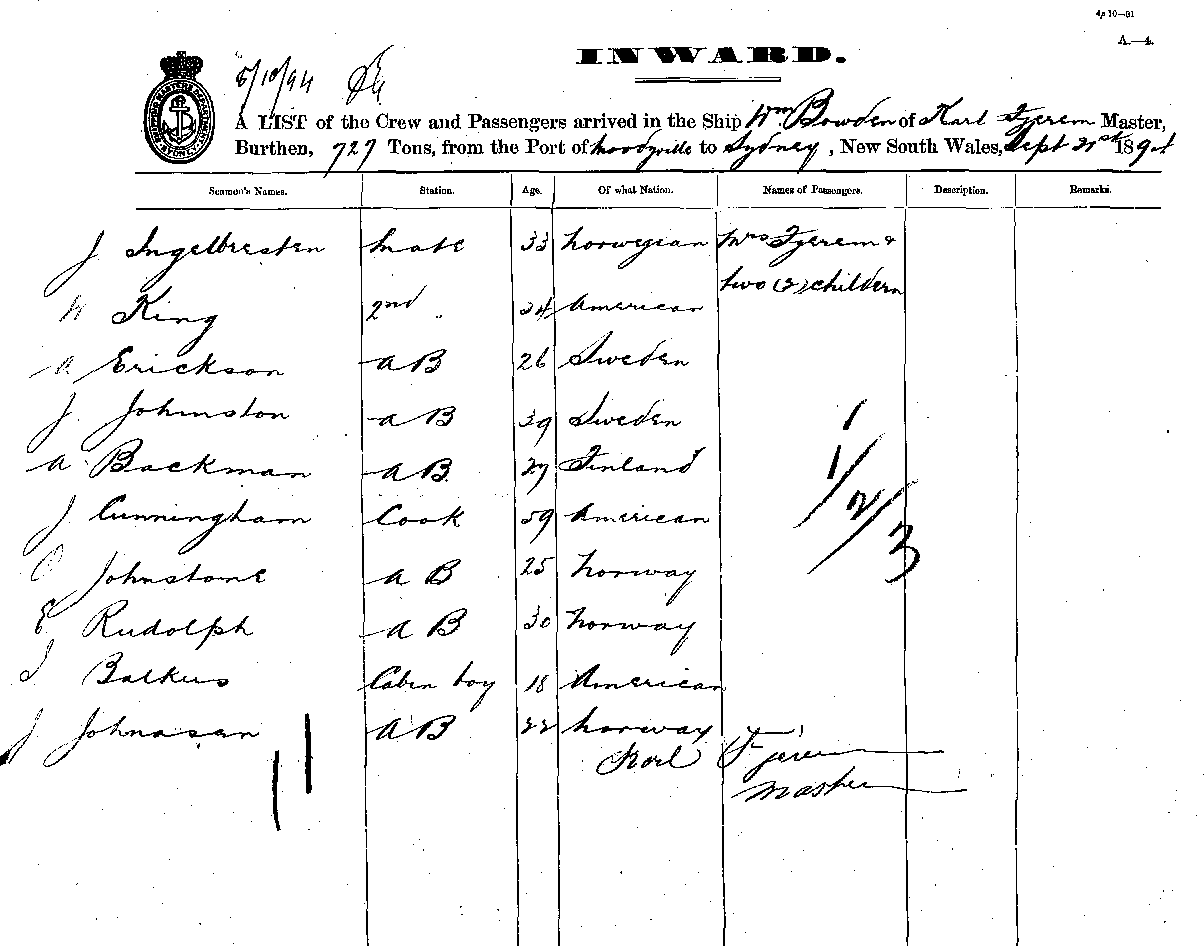 4p 10—91
A.—4.
INWARD.
5/10/94
A LIST of the Crew and Passengers arrived in the Ship Wm Bowden of Karl Fjerem Master,
Burthen, 727 Tons, from the Port of Moodyville to Sydney, New South Wales, Sept 21st 1894
Seamen's Names. Station. Age. Of what Nation. Names of Passengers. Description. Remarks.
J Ingelbresten Mate 33 Norwegian Mrs Fjerem &
two (2) childern
W King 2nd 34 American
A Erickson A B 26 Sweden
J Johnston A B 39 Sweden
A Backman A B 27 Finland
J Cunningham Cook 59 American
O Johnstone A B 25 Norway
E Rudolph A B 30 Norway
J Balkus Cabin boy 18 American
J Johnasan A B 22 Norway
Karl Fjerem
Master
11
1
1/2/3
SYDNEY